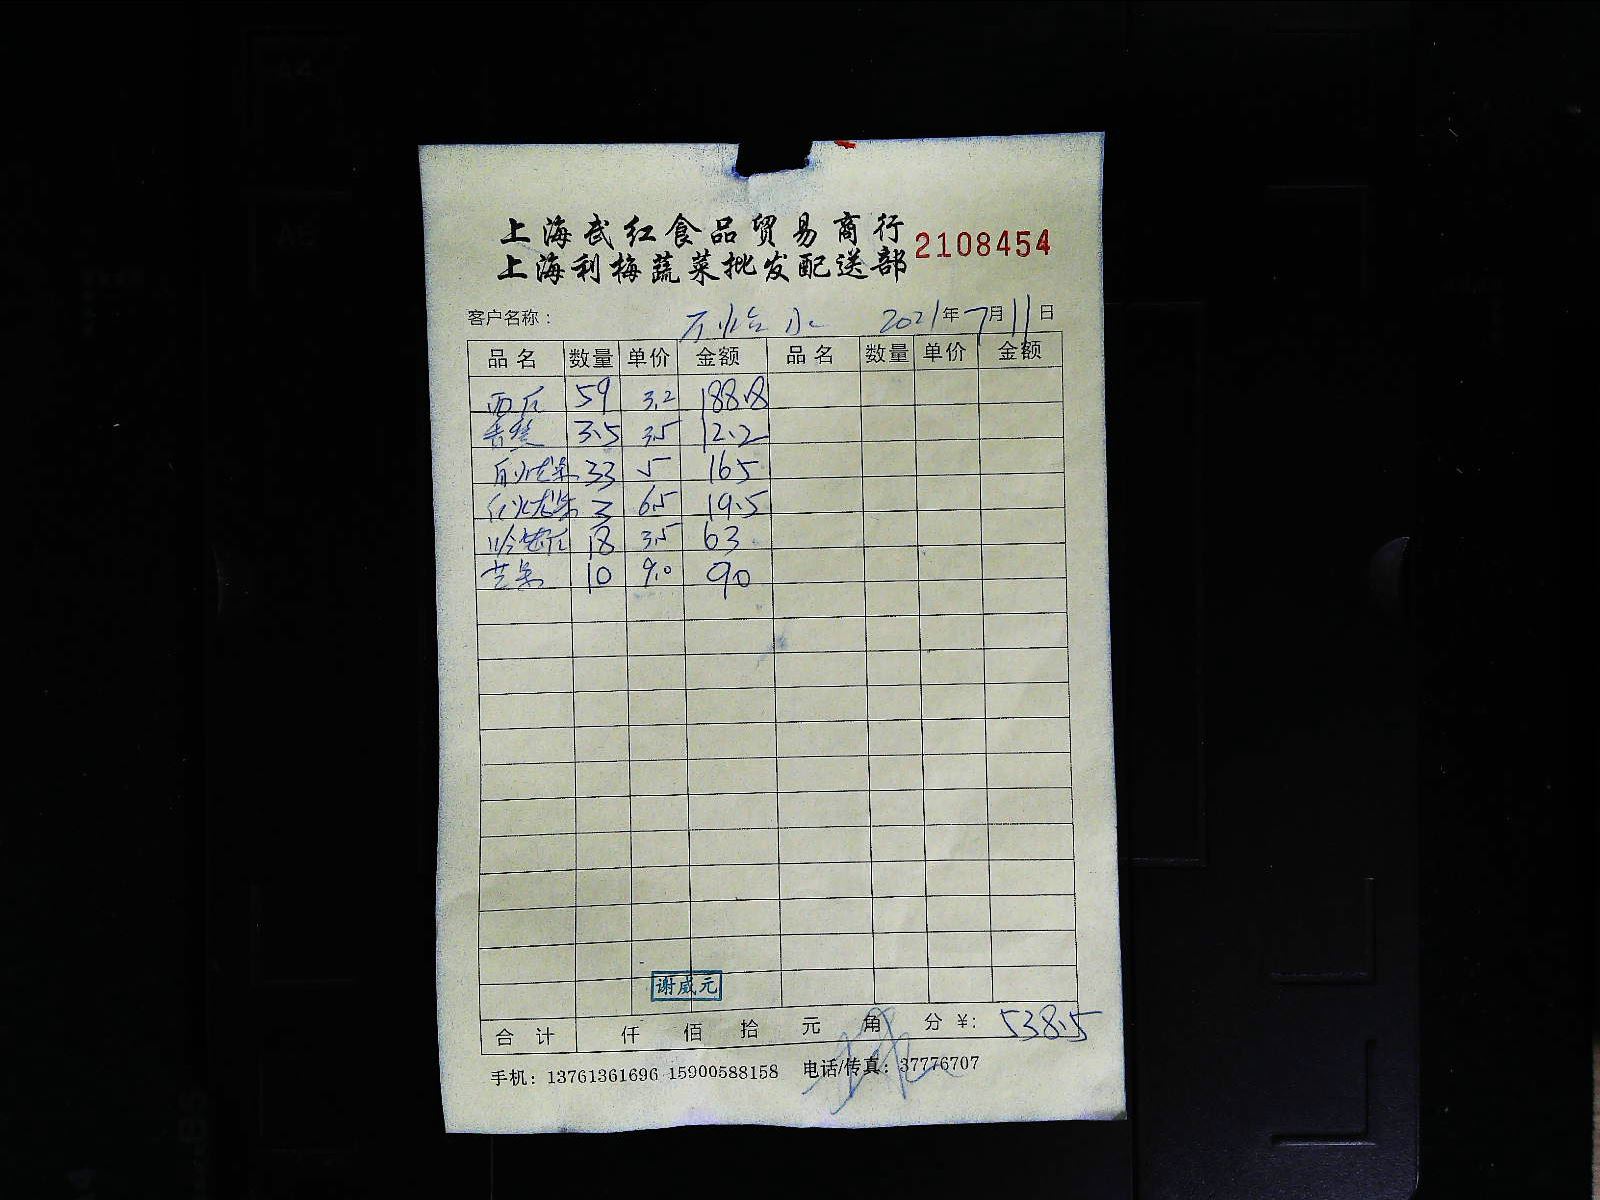 上海武红食品贸易商行
上海利梅蔬菜批发配送部
2108454
客户名称： 2021年7月11日
品名 数量 单价 金额 品名 数量 单价 金额
西瓜 59 3.2 188.8
香蕉 3.5 3.5 12.2
白火龙果 33 5 165
红火龙果 3 6.5 19.5
哈密瓜 18 3.5 63
芒果 10 9.0 90
谢威元
合计 仟 佰 拾 元 角 分 ¥: 538.5
手机：13761361696 15900588158 电话/传真：37776707